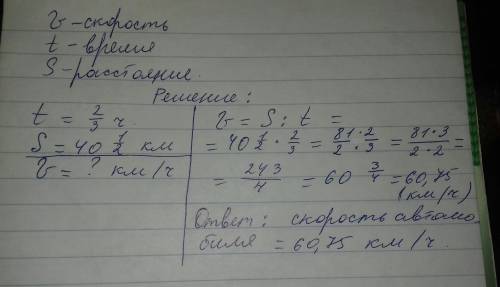 V - скорость
t - время
S - расстояние.
Решение:
t = 2/3 ч.
S = 40 1/2 км
V = ? км/ч
V = S : t =
= 40 1/2 · 2/3 = 81·2/2·3 = 81·3/2·2 =
= 243/4 = 60 3/4 = 60,75
(км/ч)
Ответ: скорость автомо
биля = 60,75 км/ч.